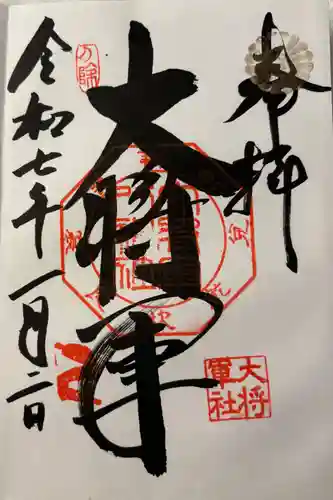 奉拝
大将軍
令和七年一月二日
方除
大将
軍社